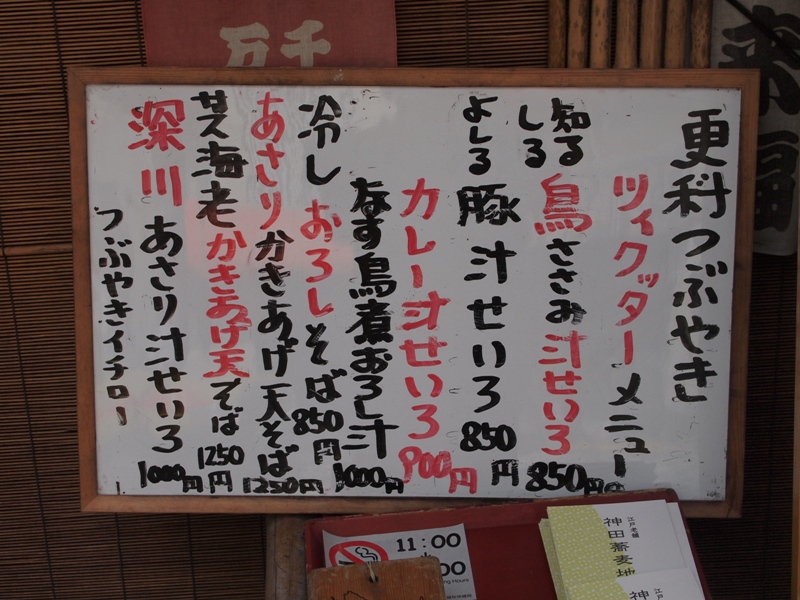 更科つぶやき
ツィクッターメニュー
知る
しる
鳥ささみ汁せいろ
850円
よしる
豚汁せいろ
850円
カレー汁せいろ
900円
なす鳥煮おろし汁
1000円
冷しおろしそば
850円
あさりかきあげ天そば
1250円
芝海老かきあげ天そば
1250円
深川あさり汁せいろ
1000円
つぶやきイチロー
千万
来福
11:00
江戸老舗
神田蕎麦地
江戸
神